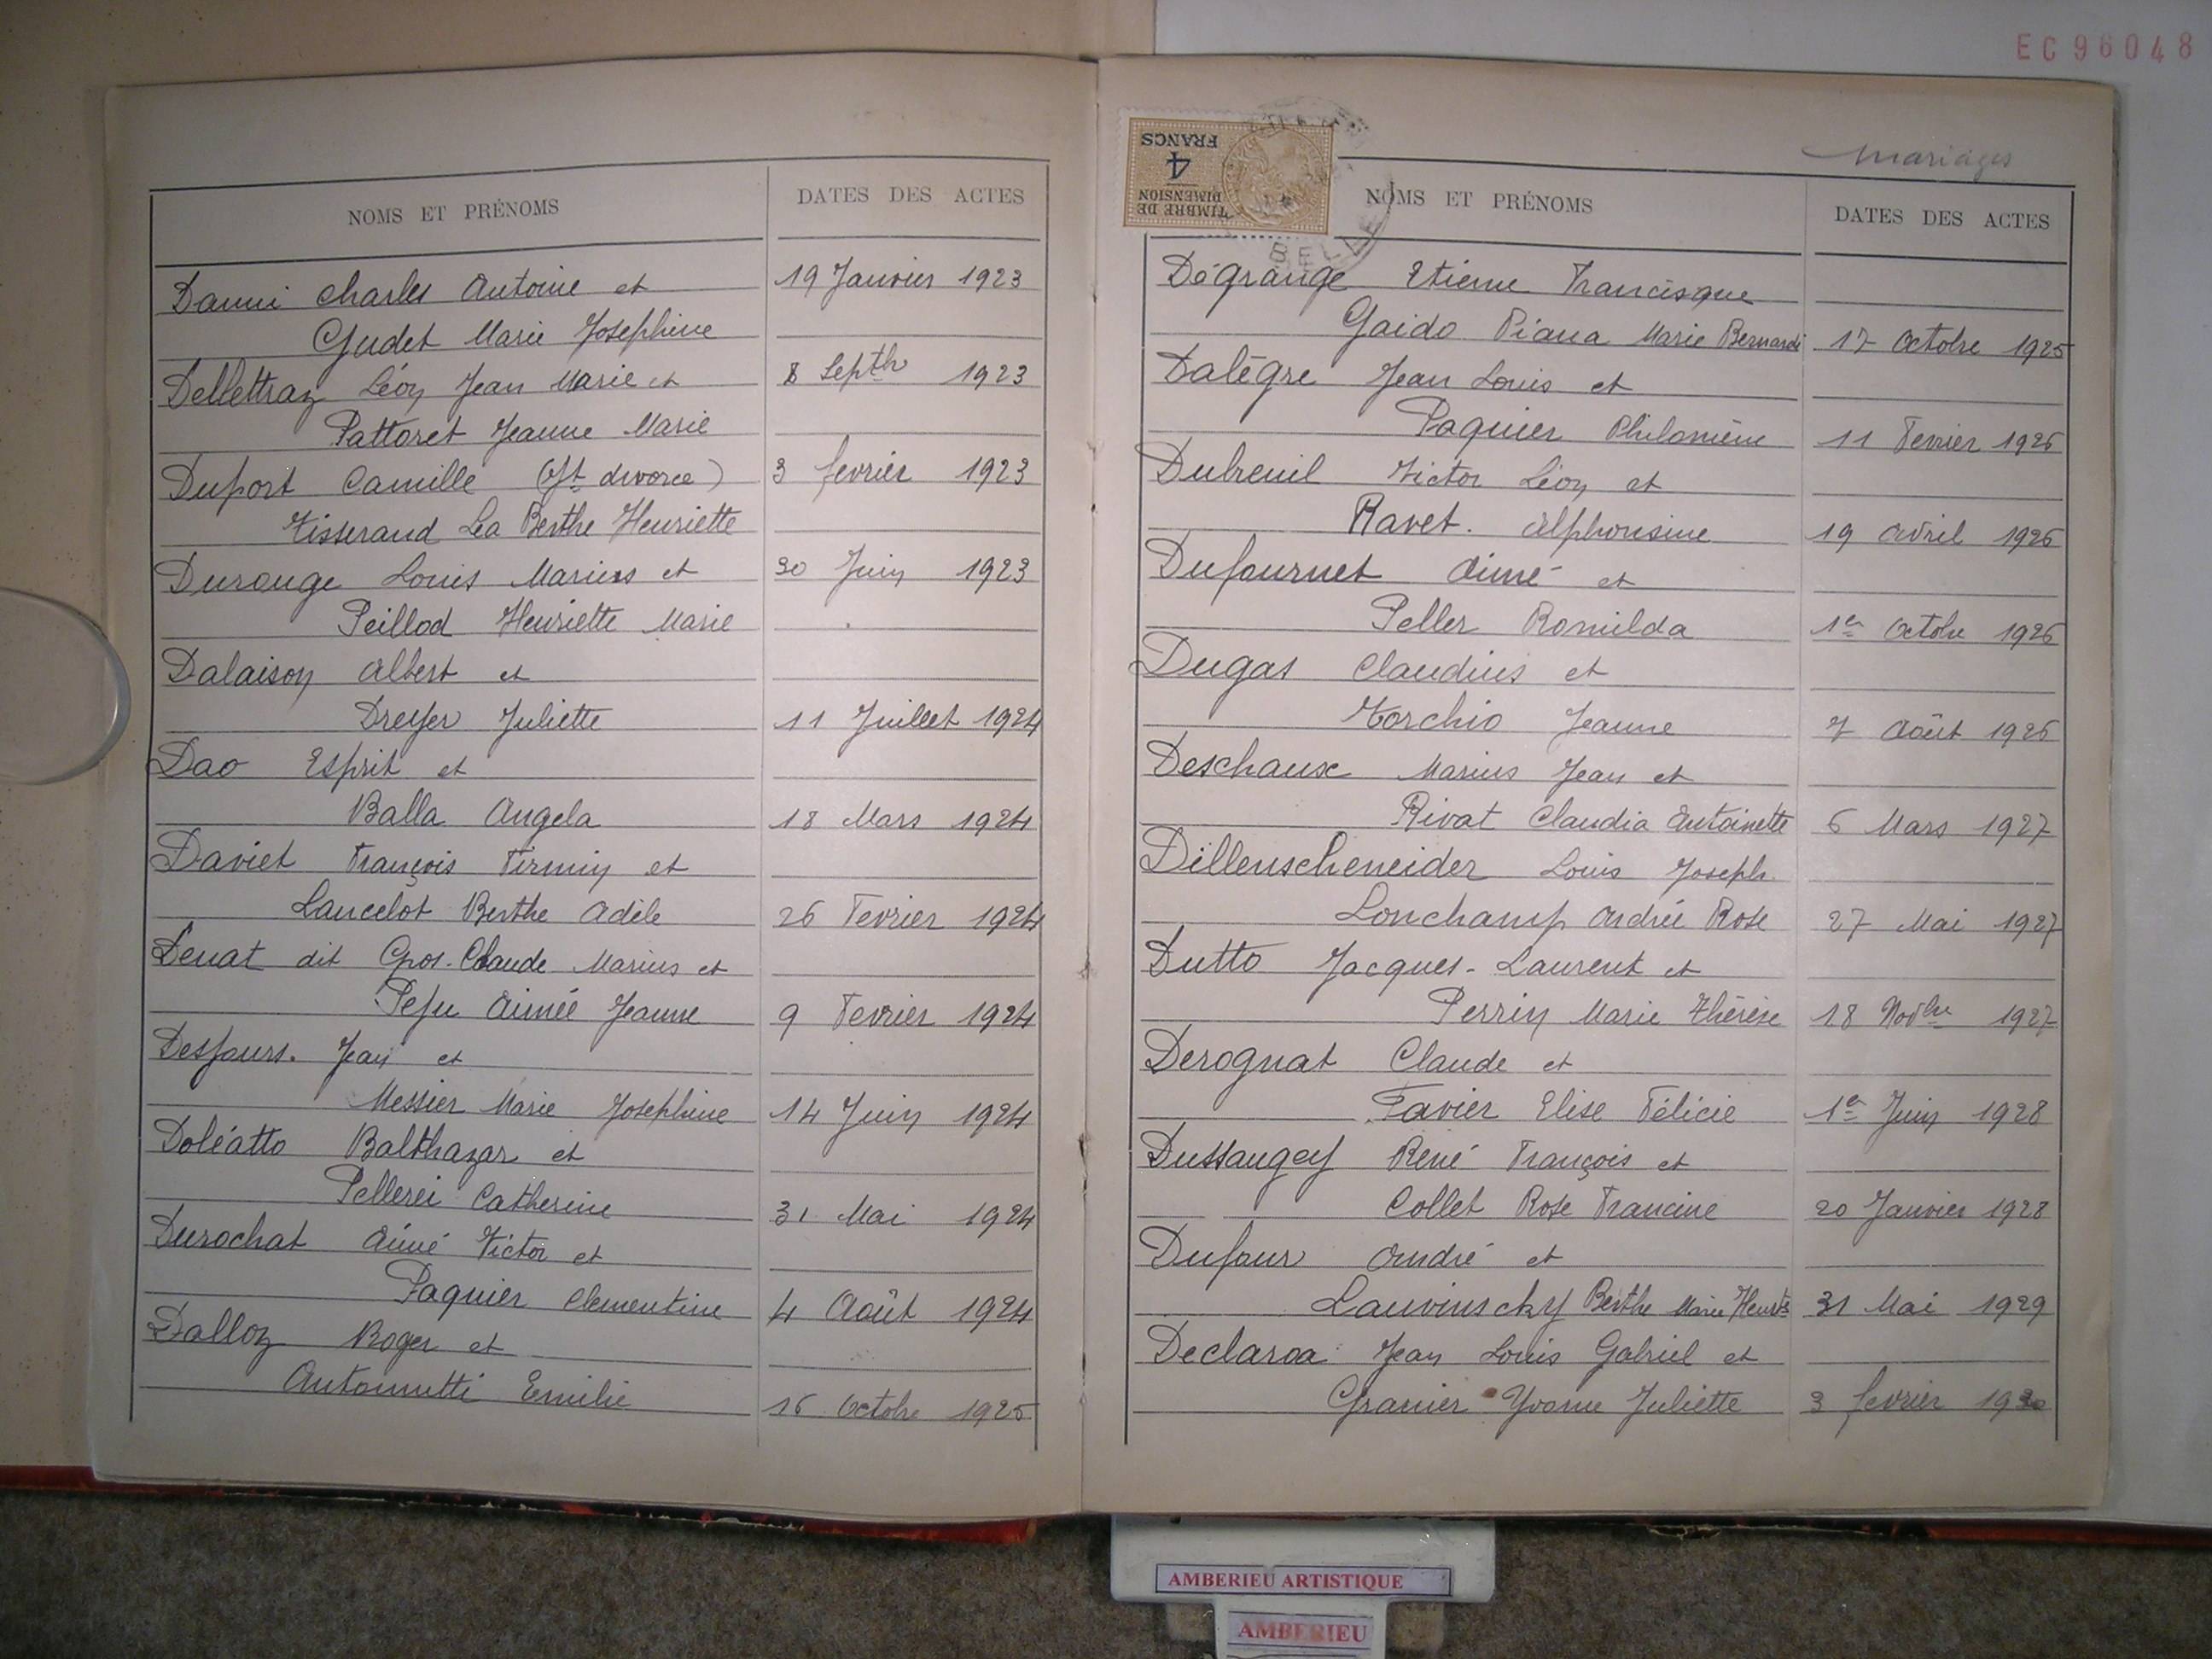 EC96048
NOMS ET PRÉNOMS DATES DES ACTES
Danni Charles Antoine et 19 Janvier 1923
Gudet Marie Josephine
Dellettraz Léon Jean Marie et 8 Septbr 1923
Pattoret Jeanne Marie
Duport Camille (Jt divorce) 3 fevrier 1923
Tisserand Léa Berthe Henriette
Durouge Louis Marius et 30 Juin 1923
Peillod Henriette Marie
Dalaison Albert et
Dreyer Juliette 11 Juillet 1924
Dao Esprit et
Balla Angela 18 Mars 1924
Daviet François Firmin et
Lancelot Berthe Adèle 26 Fevrier 1924
Denat dit Gros-Claude Marius et
Pefu Aimée Jeanne 9 Fevrier 1924
Desfours. Jean et
Messier Marie Josephine 14 Juin 1924
Doléatto Balthazar et
Pellerei Catherine 31 Mai 1924
Durochat Aimé Victor et
Paquier Clementine 4 Août 1924
Dalloz Roger et
Antoniutti Emilie 16 Octobre 1925
TIMBRE DE
DIMENSION
4
FRANCS
BELLE
mariages
NOMS ET PRÉNOMS DATES DES ACTES
Dégrange Etienne Francisque
Gaido Piana Marie Bernardi 17 Octobre 1925
Dalègre Jean Louis et
Paquier Philomène 11 Fevrier 1926
Dubreuil Victor Léon et
Ravet. Alphonsine 19 Avril 1926
Dufournet Aimé et
Peller Romilda 1er Octobre 1926
Dugas Claudius et
Torchio Jeanne 7 Août 1926
Deschaux Marius Jean et
Rivat Claudia Antoinette 6 Mars 1927
Dillenscheneider Louis Joseph
Lonchamp Andrée Rose 27 Mai 1927
Dutto Jacques-Laurent et
Perrin Marie Thérèse 18 Novbre 1927
Derognat Claude et
Favier Elise Félicie 1er Juin 1928
Dussaugey René François et
Collet Rose Francine 20 Janvier 1928
Dufour André et
Lauvinscky Berthe Marie Henrte 31 Mai 1929
Declaroa Jean Louis Gabriel et
Granier Yvonne Juliette 3 fevrier 1930
AMBERIEU ARTISTIQUE
AMBERIEU